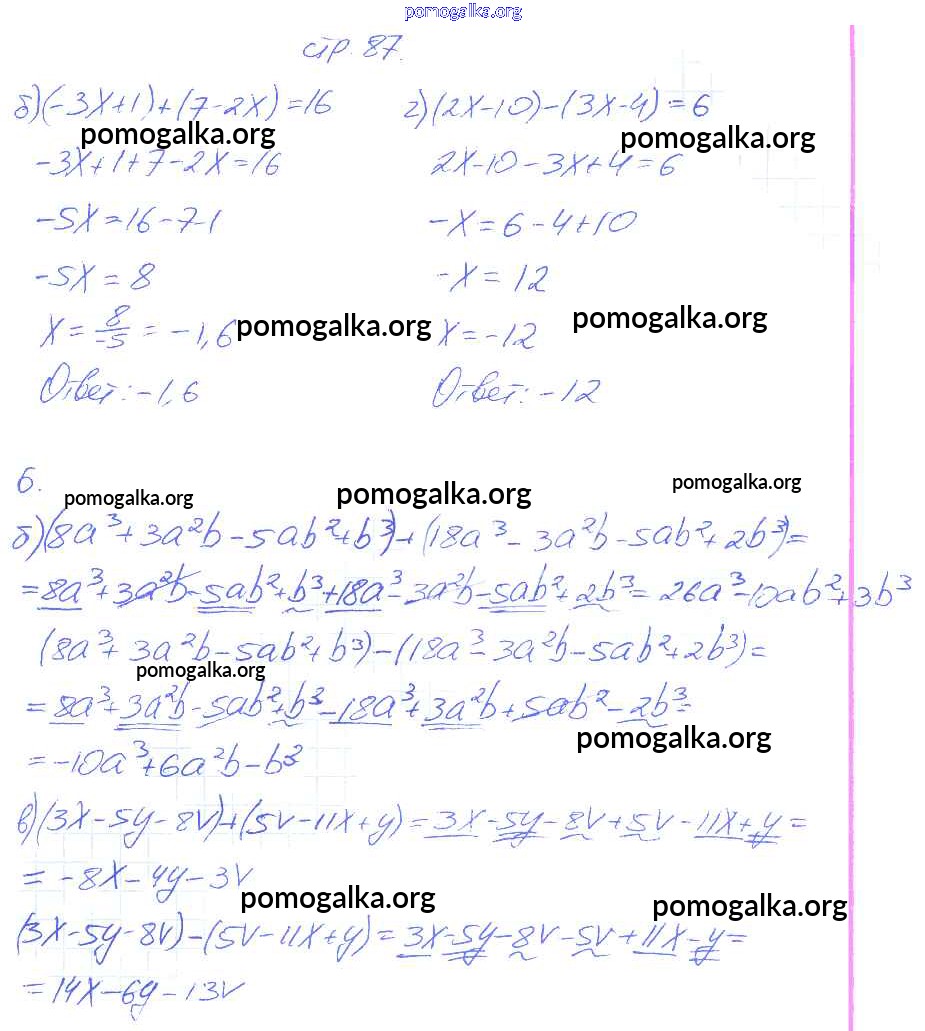 pomogalka.org
стр. 87.
б) (-3x+1)+(7-2x)=16 г) (2x-10)-(3x-4)=6
pomogalka.org pomogalka.org
-3x+1+7-2x=16 2x-10-3x+4=6
-5x=16-7-1 -x=6-4+10
-5x=8 -x=12
x=8/-5=-1,6 pomogalka.org x=-12 pomogalka.org
Ответ: -1,6 Ответ: -12
6.
pomogalka.org pomogalka.org pomogalka.org
б) (8a³+3a²b-5ab²+b³)+(18a³-3a²b-5ab²+2b³)=
=8a³+3a²b-5ab²+b³+18a³-3a²b-5ab²+2b³=26a³-10ab²+3b³
(8a³+3a²b-5ab²+b³)-(18a³-3a²b-5ab²+2b³)=
pomogalka.org
=8a³+3a²b-5ab²+b³-18a³+3a²b+5ab²-2b³=
pomogalka.org
=-10a³+6a²b-b³
в) (3x-5y-8v)+(5v-11x+y)=3x-5y-8v+5v-11x+y=
=-8x-4y-3v
pomogalka.org pomogalka.org
(3x-5y-8v)-(5v-11x+y)=3x-5y-8v-5v+11x-y=
=14x-6y-13v